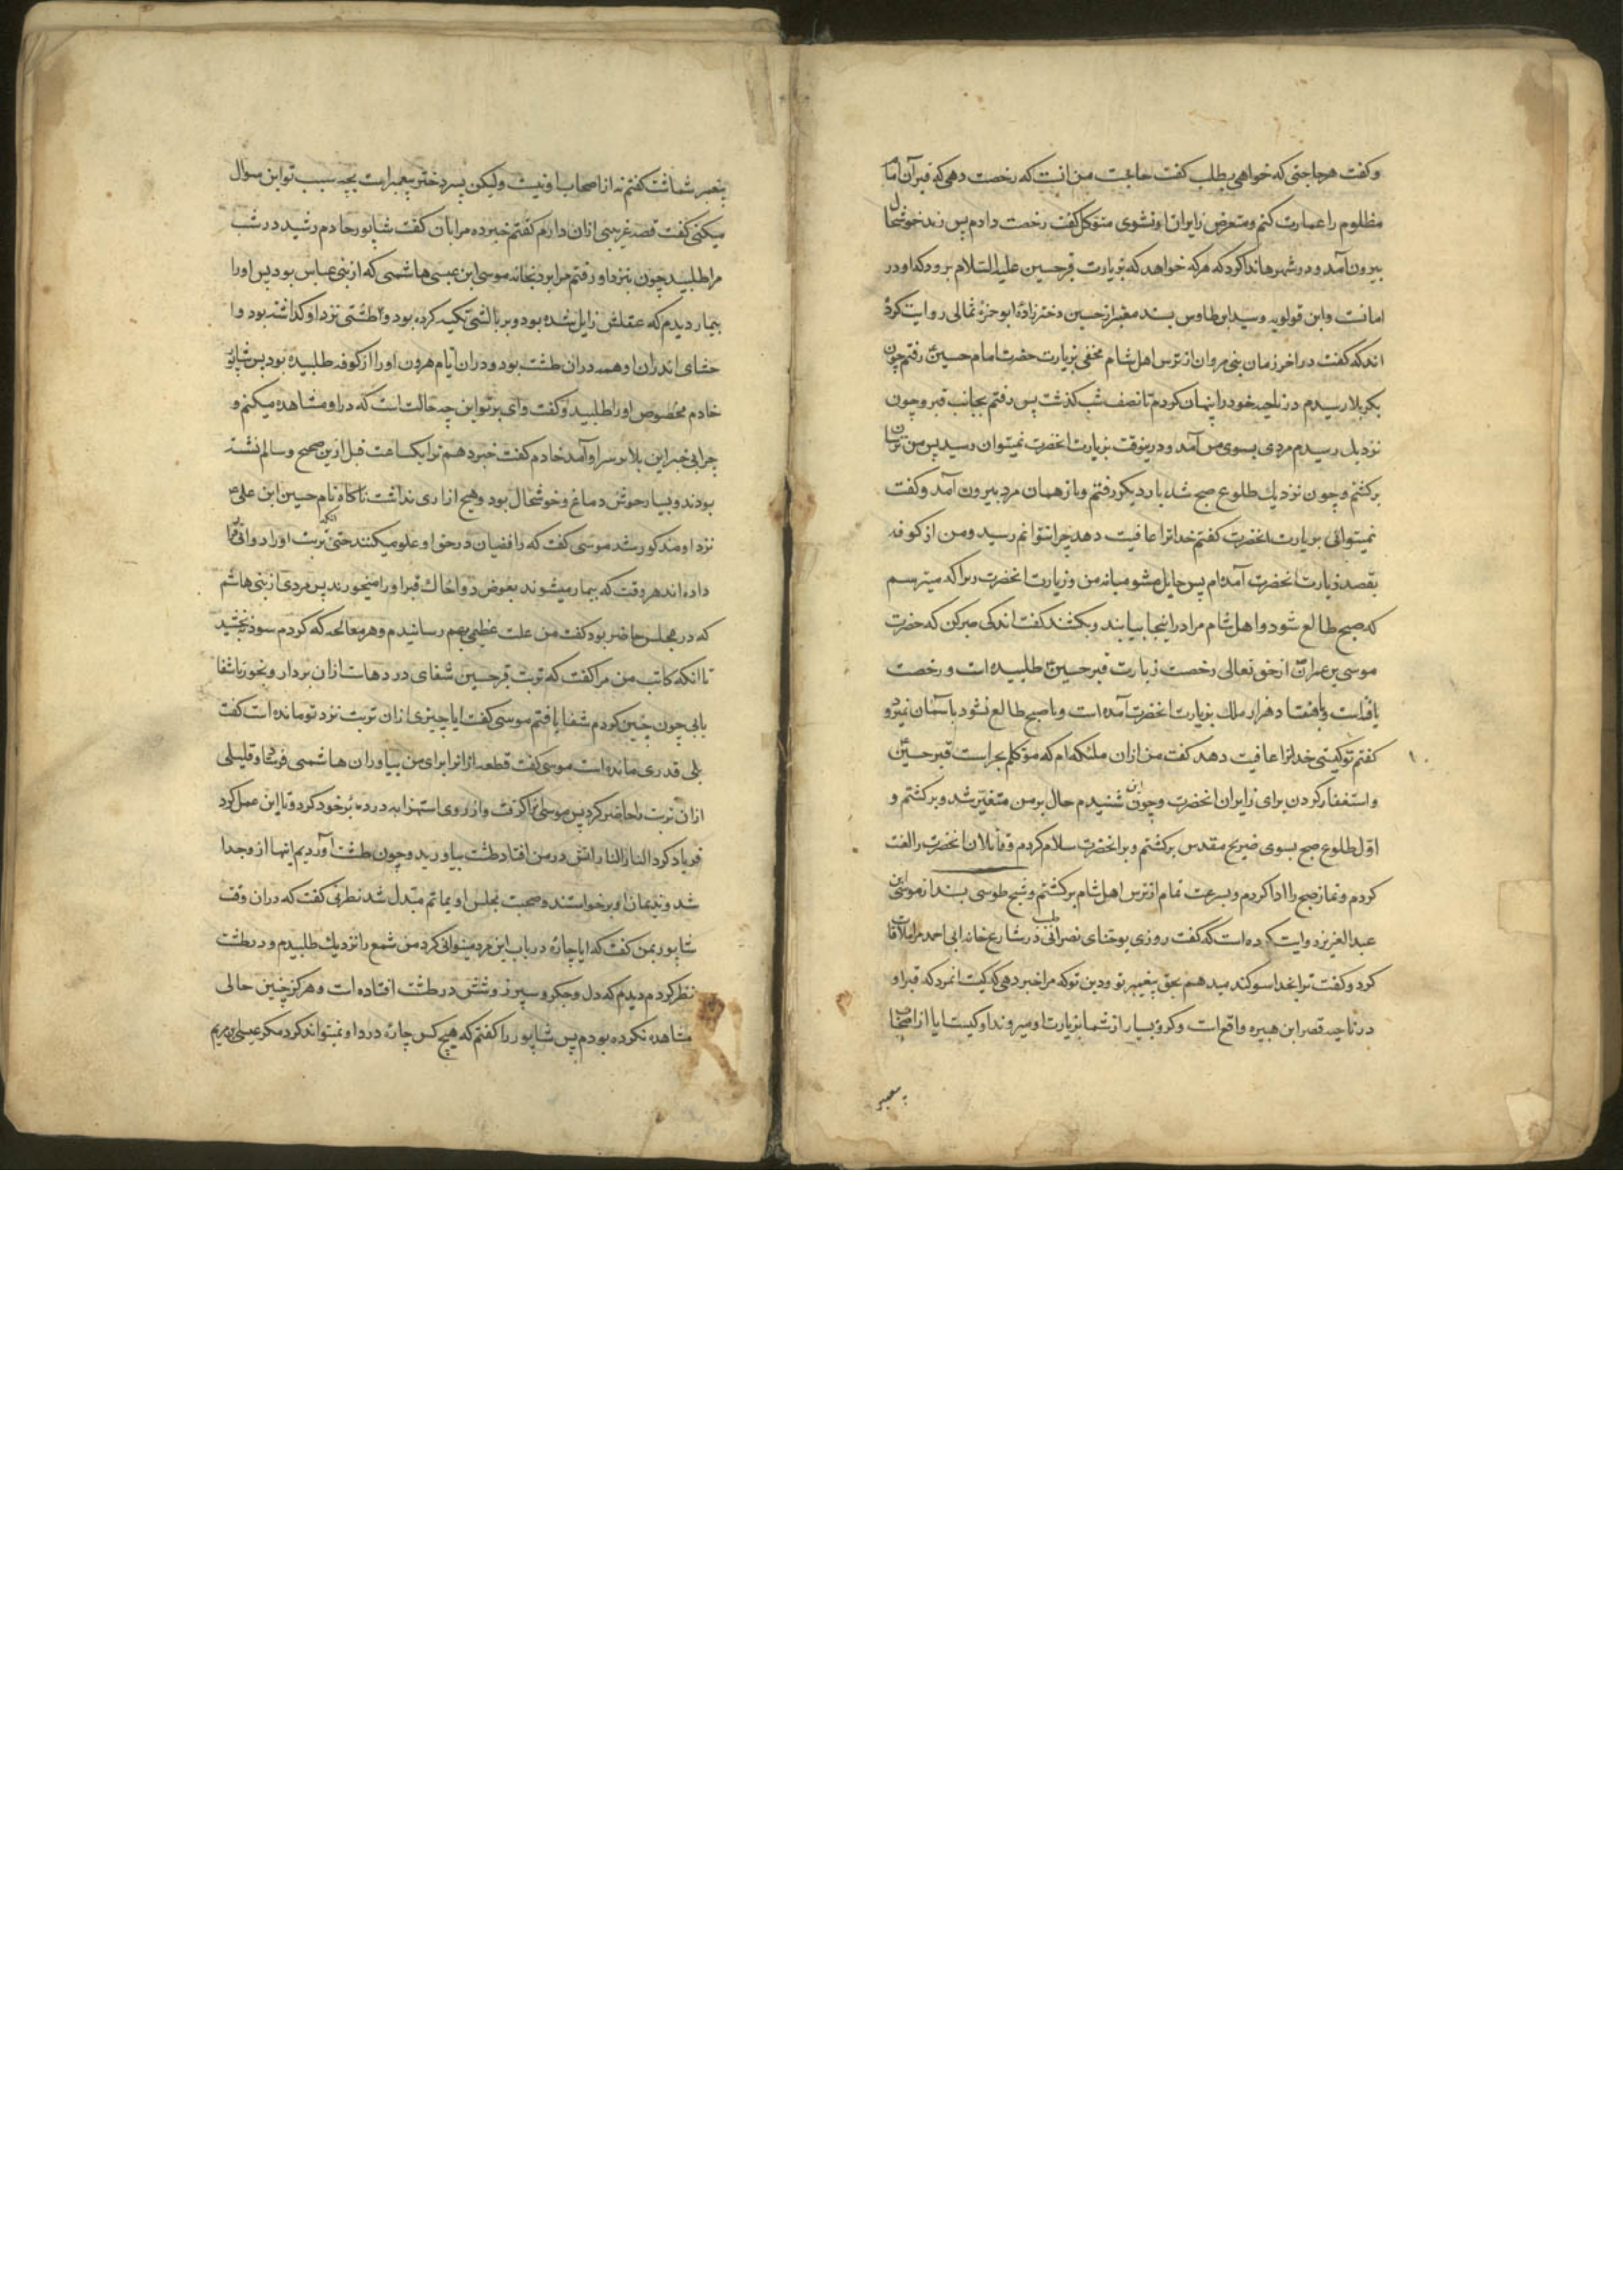 وکفت هر حاجتی که خواهی بطلب کفت حاجت من انست که رخصت دهی که قبر آن امام
مظلوم را عمارت کنم ومتعرض زایران او نشوی متوکل کفت رخصت دادم پس زید خوشحال
بیرون آمد ودر شهرها ندا کرد که هر که خواهد که بزیارت قبر حسین علیه السلام برود که او در
امانست وابن قولویه وسید ابن طاوس بسند معتبر از حسین دختر زاده ابو حمزهٔ ثمالی روایت کرده
اند که کفت در اخر زمان بنی مروان از ترس اهل شام مخفی بزیارت حضرت امام حسین ع رفتم چون
بکربلا رسیدم در ناحیه خود را پنهان کردم تا نصف شب کذشت پس رفتم بجانب قبر وچون
نزدیك رسیدم مردی بسوی من آمد ودرینوقت بزیارت انحضرت نمیتوان رسید پس من ترسان
برکشتم وچون نزدیك طلوع صبح شد بار دیکر رفتم وباز همان مرد بیرون آمد وکفت
نمیتوانی بزیارت انحضرت کفتم خدا ترا عافیت دهد چرا نتوانم رسید ومن از کوفه
بقصد زیارت انحضرت آمده‌ام پس حایل مشو میانه من وزیارت انحضرت زیرا که میترسم
که صبح طالع شود واهل شام مرا در اینجا بیابند وبکشند کفت اندکی صبر کن که حضرت
موسی بن عمران ع از حق تعالی رخصت زیارت قبر حسین ع طلبیده است ورخصت
یافته‌است وبا هفتاد هزار ملك بزیارت انحضرت آمده است وتا صبح طالع نشود باسمان نمیرود
کفتم تو کیستی خدا ترا عافیت دهد کفت من ازان ملئکه‌ام که موکلم بحراست قبر حسین ع
واستغفار کردن برای زایران انحضرت وچون این شنیدم حال بر من متغیر شد وبرکشتم و
اول طلوع صبح بسوی ضریح مقدس برکشتم وبر انحضرت سلام کردم وقاتلان انحضرت را لعنت
کردم ونماز صبح را ادا کردم وبسرعت تمام از ترس اهل شام برکشتم وشیخ طوسی بسند از موسی ابن
عبد العزیز روایت کرده است که کفت روزی یوحنای نصرانی طبیب در شارع خانه ابی احمد مرا ملاقات
کرد وکفت ترا بخدا سوکند میدهم بحق پیغمبر تو ودین تو که مرا خبر دهی که کیست انمرد که قبر او
در ناحیه قصر ابن هبیره واقع است وکروه بسیار از شما بزیارت او میروند او کیست ایا از اصحاب
پیغمبر
پیغمبر شماست کفتم نه از اصحاب او نیست ولیکن پسر دختر پیغمبر است بچه سبب تو این سوال
میکنی کفت قصه غریبی ازان دارم کفتم خبر ده مرا بان کفت شاپور خادم رشید در شب
مرا طلبید چون بنزد او رفتم مرا برد بخانه موسی ابن عیسی هاشمی که از بنی عباس بود پس او را
بیمار دیدم که عقلش زایل شده بود وبر بالشی تکیه کرده بود وطشتی نزد او کذاشته بود وا
حشای اندران او همه دران طشت بود ودران ایام هرون او را از کوفه طلبیده بود پس شاپور
خادم مخصوص او را طلبید وکفت وای بر تو این چه حالت است که در او مشاهده میکنم و
چرا بی خبر این بلا بر سر او آمد خادم کفت خبر دهم ترا یکساعت قبل ازین صحیح وسالم نشسته
بودند وبسیار خوش دماغ وخوشحال بود وهیچ ازاری نداشت ناکاه نام حسین ابن علی ع
نزد او مذکور شد موسی کفت که رافضیان در حق او غلو میکنند حتی انکه تربت او را دوا قرار
داده‌اند هر وقت که بیمار میشوند بعوض دوا خاك قبر او را میخورند پس مردی از بنی هاشم
که در مجلس حاضر بود کفت من علت عظیمی بهم رسانیدم وهر معالجه که کردم سود نبخشید
تا انکه کاتب من مرا کفت که تربت قبر حسین شفای دردهاست ازان بردار وبخور تا شفا
یابی چون چنین کردم شفا یافتم موسی کفت ایا چیزی ازان تربت نزد تو مانده است کفت
بلی قدری مانده است موسی کفت قطعه از انرا برای من بیاور ان هاشمی فرستاد وقلیلی
ازان تربت را حاضر کرد پس موسی انرا کرفت واز روی استهزا به در دبر خود کرد وتا این عمل کرد
فریاد کرد النار النار اتش در من افتاد طشت بیاورید وچون طشت آوردیم اینها از وجدا
شد وندیمان او برخواستند وصحبت مجلس او بماتم مبدل شد نصرانی کفت که دران وقت
شاپور بمن کفت که ایا چاره در باب این مرد میتوانی کرد من شمع را نزدیك طلبیدم ودر طشت
نظر کردم دیدم که دل وجکر وسپرز وشش در طشت افتاده است وهرکز چنین حالی
مشاهده نکرده بودم پس شاپور را کفتم که هیچ کس چاره درد او نمیتواند کرد مکر عیسی بن مریم